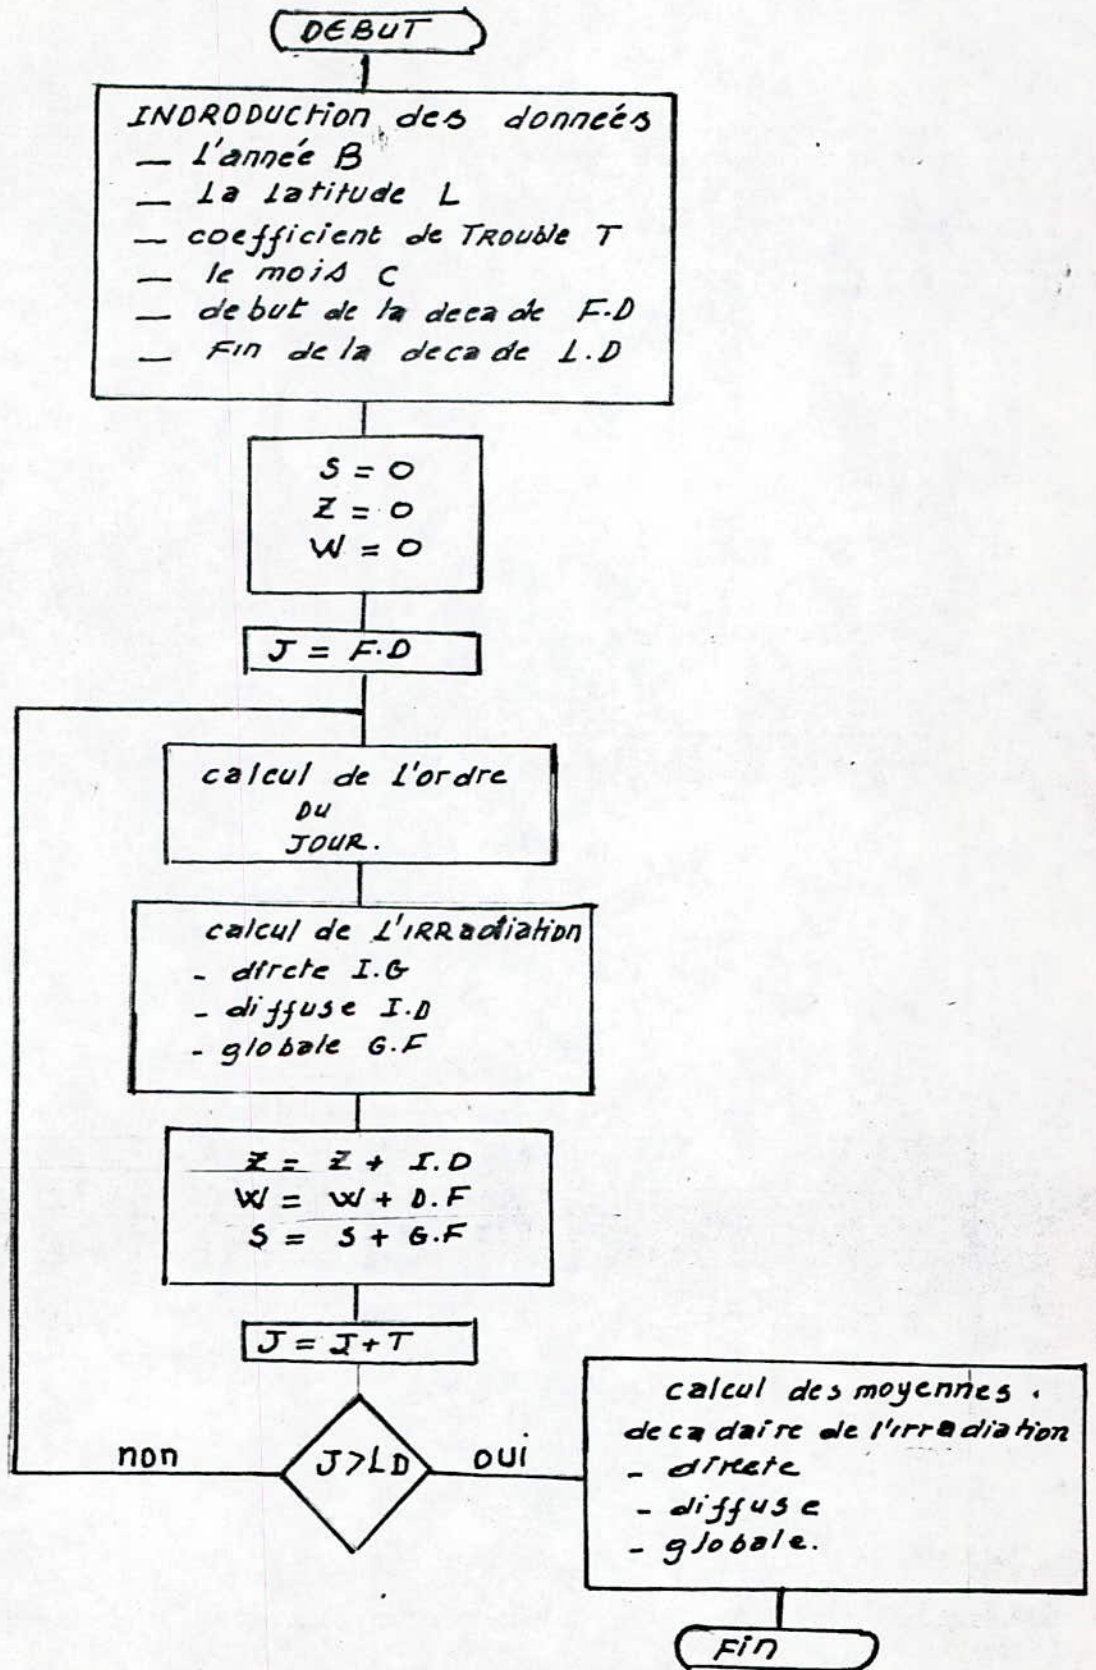 DEBUT
INDRODUCTION des donneés
— L'année B
— La Latitude L
— coefficient de TROUBLE T
— le mois C
— debut de la decade F.D
— Fin de la decade L.D
S = 0
Z = 0
W = 0
J = F.D
calcul de L'ordre
DU
JOUR.
calcul de L'IRRadiation
- dircte I.G
- diffuse I.D
- globale G.F
Z = Z + I.D
W = W + D.F
S = S + G.F
J = J+T
J>LD
non
oui
calcul des moyennes
decadaire de l'irradiation
- directe
- diffuse
- globale.
Fin